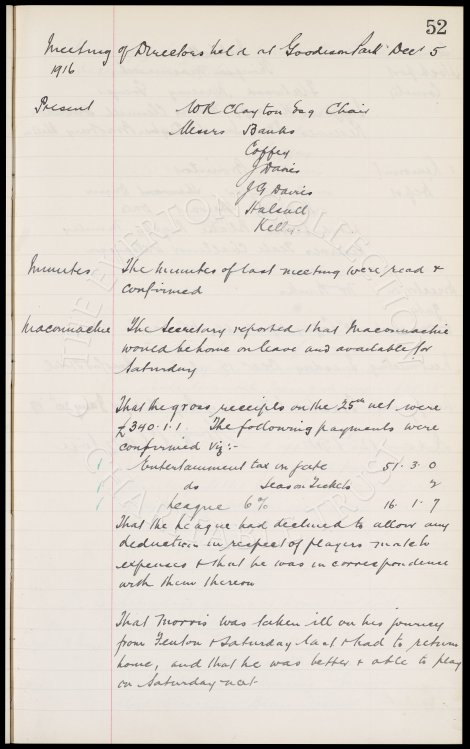 52
Meeting of Directors held at Goodison Park Decr 5
1916
Present W R Clayton Esq Chair
Messrs Banks
Coffey
J Davies
J G Davies
Halsall
Kelly
Minutes The minutes of last meeting were read &
confirmed
Maconnachie The Secretary reported that Maconnachie
would be home on leave and available for
Saturday
That the gross receipts on the 25th ult were
£340.1.1. The following payments were
confirmed viz:-
Entertainment tax on gate 51.3.0
do Season Tickets 2
League 6% 16.1.7
That the League had declined to allow any
deduction in respect of players match
expenses & that he was in correspondence
with them thereon
That Morris was taken ill on his journey
from Fenton & Saturday last & had to return
home, and that he was better & able to play
on Saturday next.
THE EVERTON COLLECTION
CHARITABLE TRUST